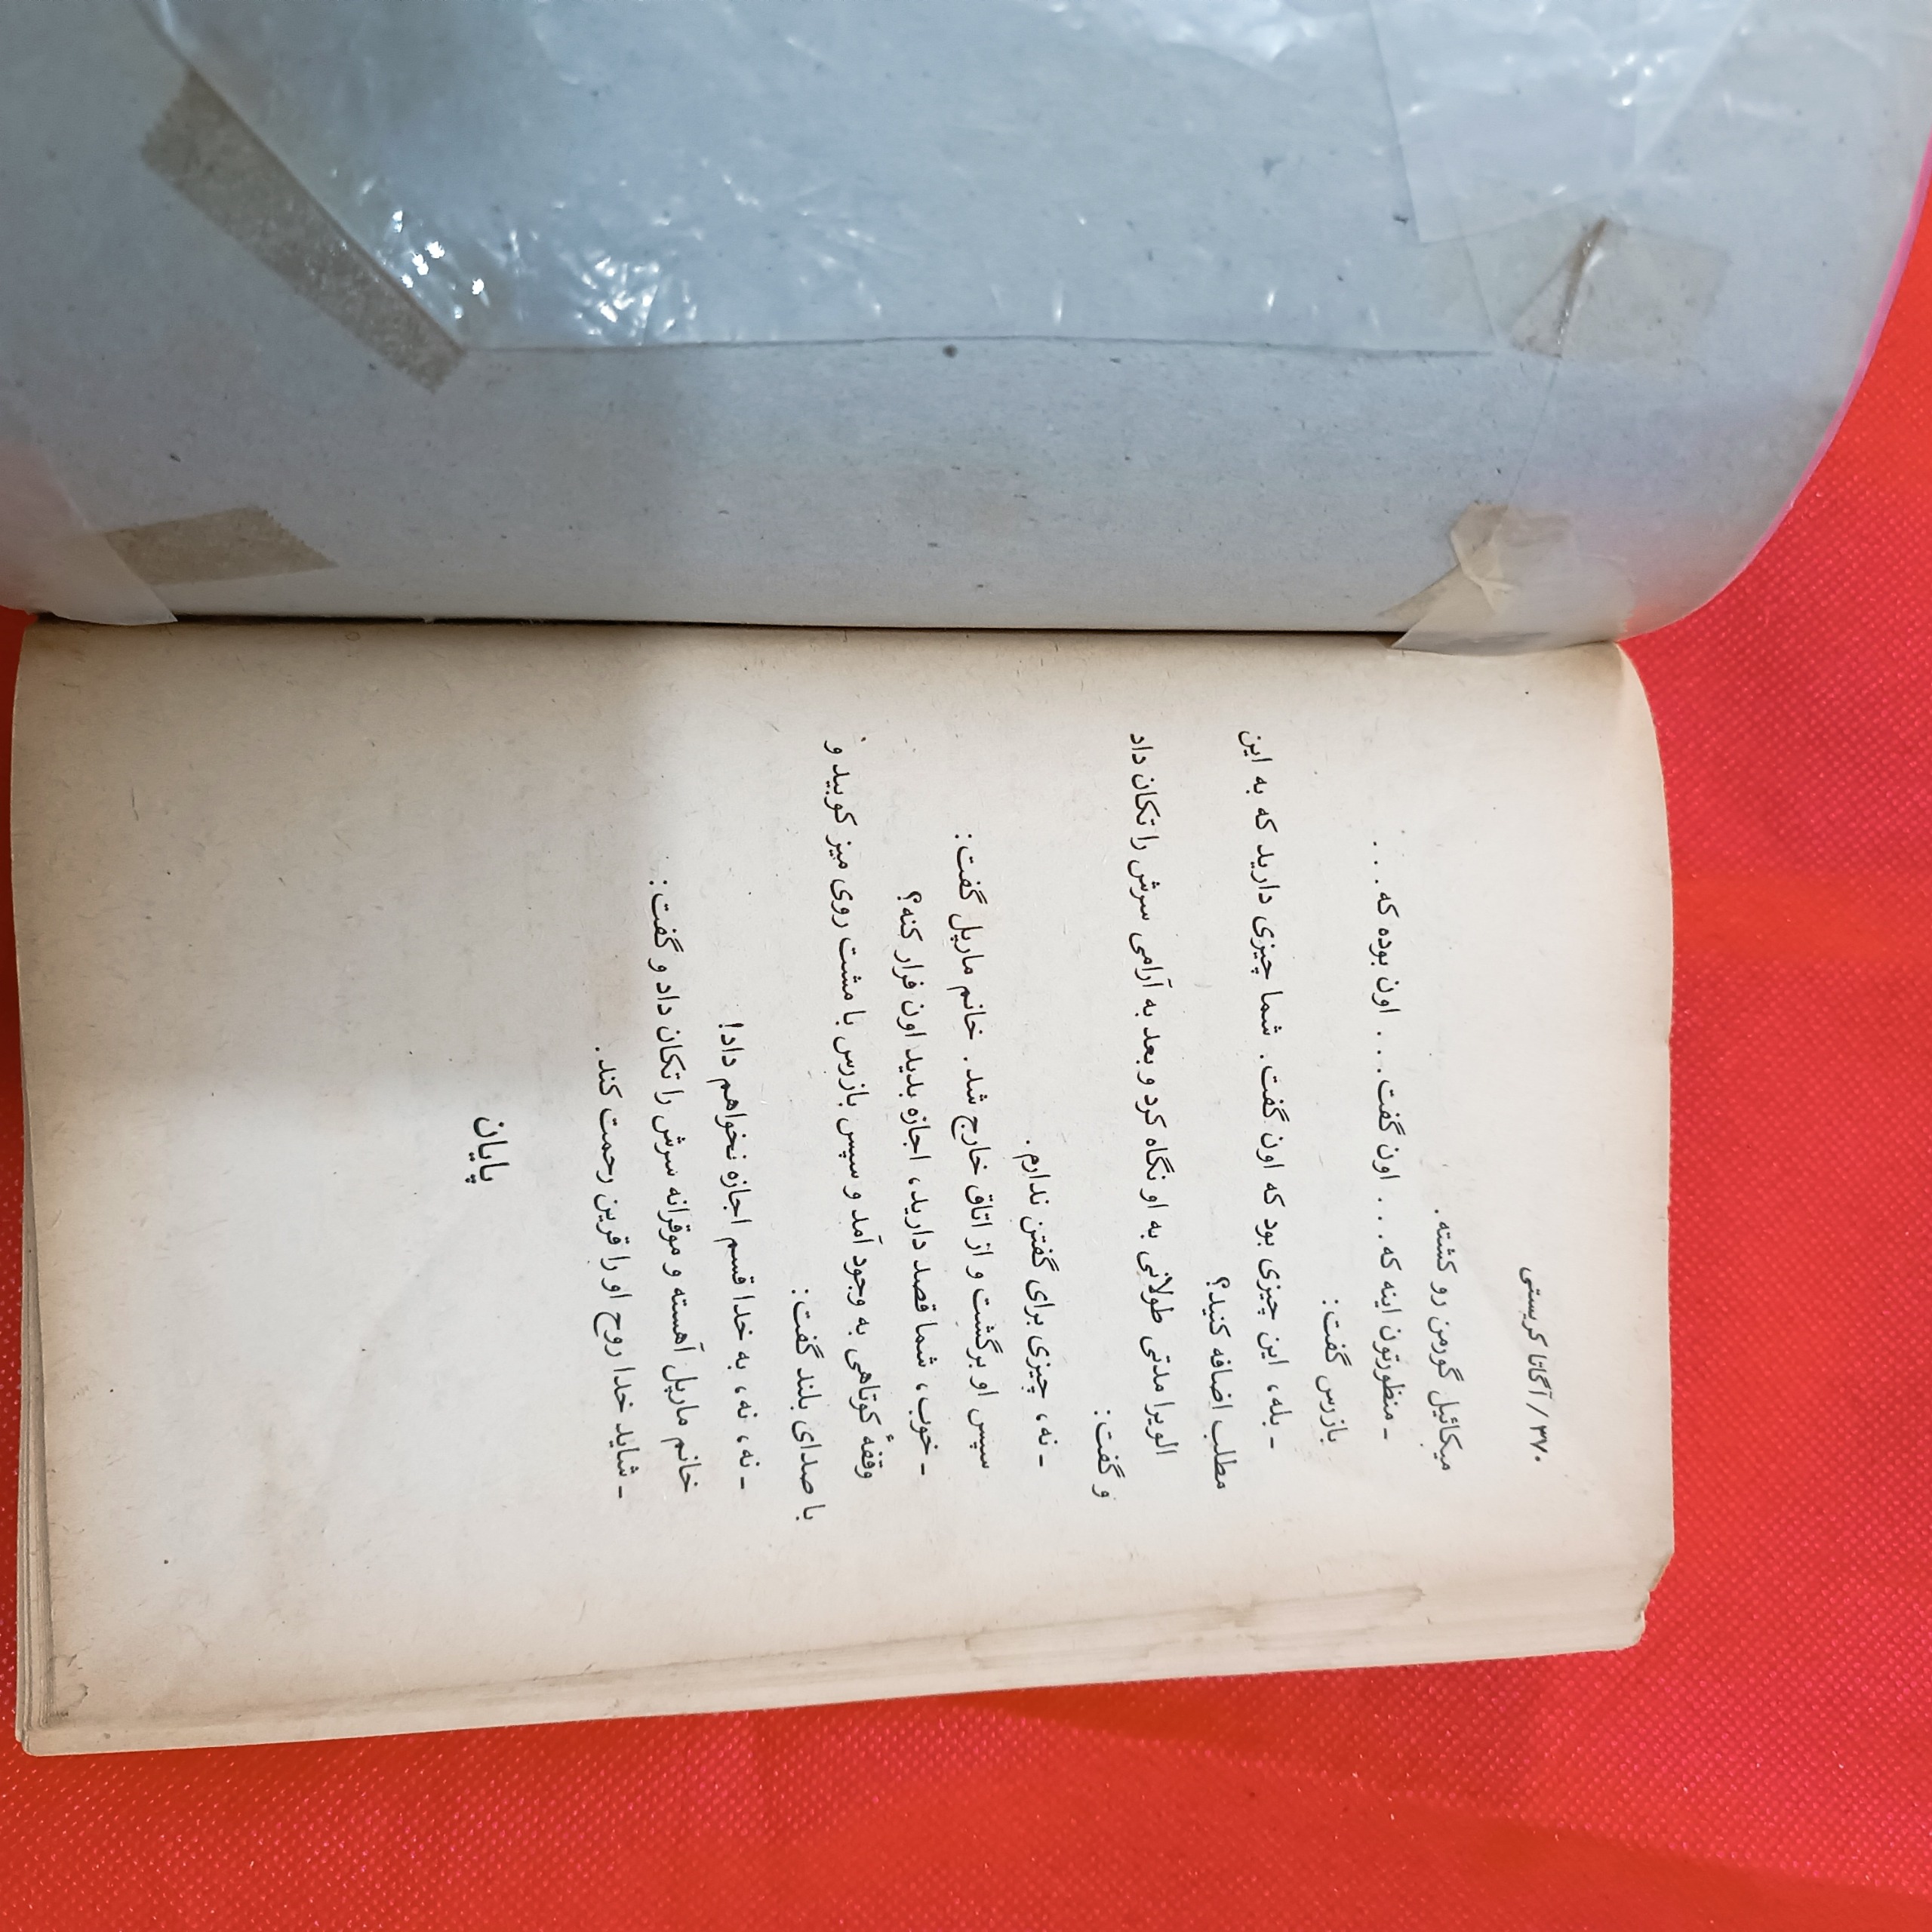 ۳۷۰ / آگاتا کریستی
میکائیل گورمن رو کشته.
ـ منظورتون اینه که . . . اون گفت . . . اون بوده که . . .
بازرس گفت:
ـ بله، این چیزی بود که اون گفت. شما چیزی دارید که به این
مطلب اضافه کنید؟
الویرا مدتی طولانی به او نگاه کرد و بعد به آرامی سرش را تکان داد
و گفت:
ـ نه، چیزی برای گفتن ندارم.
سپس او برگشت و از اتاق خارج شد. خانم مارپل گفت:
ـ خوب، شما قصد دارید، اجازه بدید اون فرار کنه؟
وقفهٔ کوتاهی به وجود آمد و سپس بازرس با مشت روی میز کوبید و
با صدای بلند گفت:
ـ نه، نه، به خدا قسم اجازه نخواهم داد!
خانم مارپل آهسته و موقرانه سرش را تکان داد و گفت:
ـ شاید خدا روح او را قرین رحمت کند.
پایان